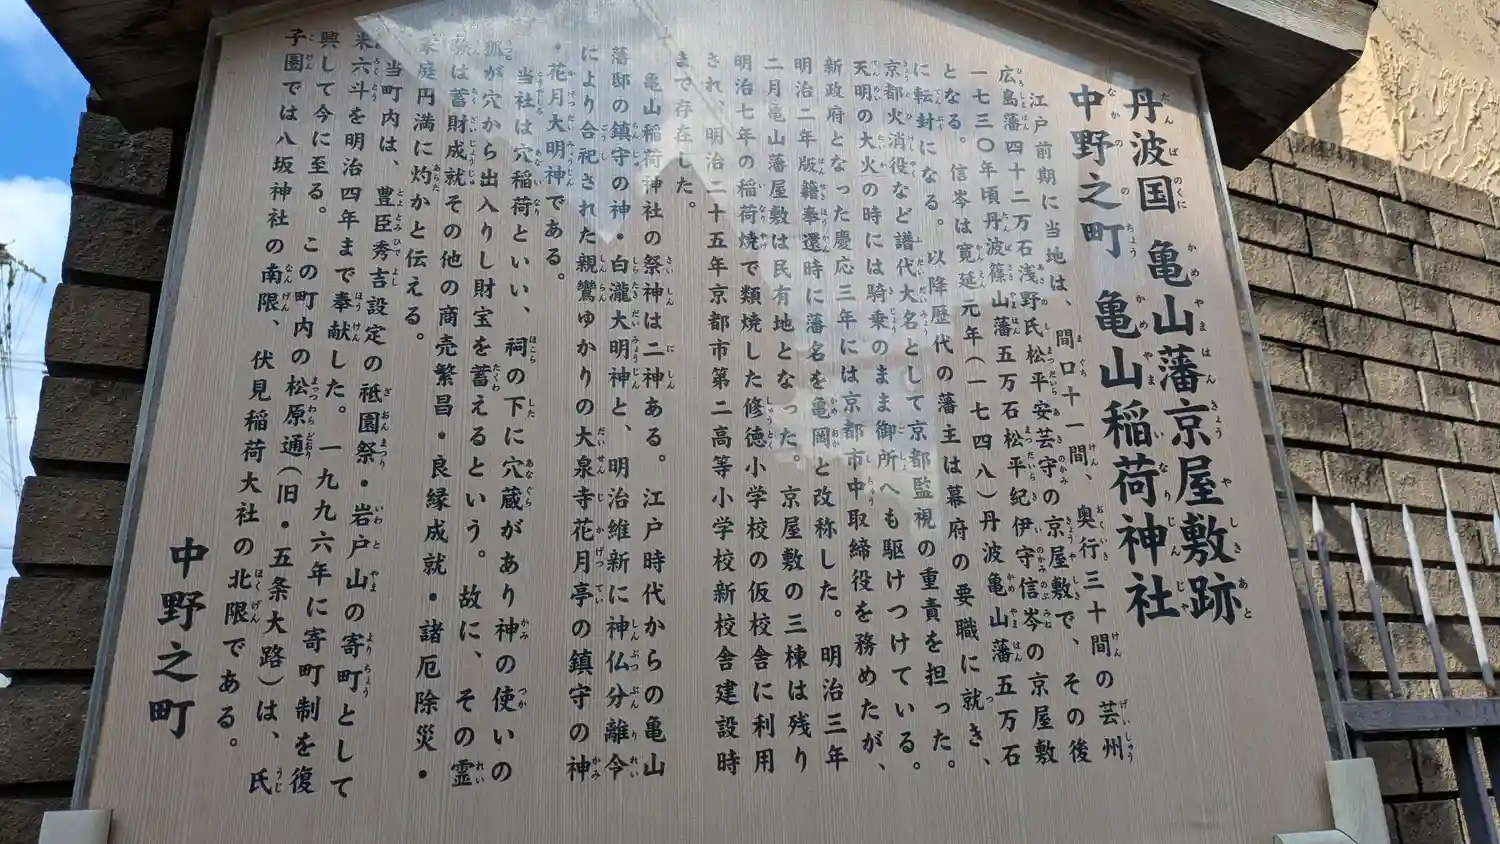 丹波国 亀山藩京屋敷跡
中野之町 亀山稲荷神社
江戸前期に当地は、間口十一間、奥行三十間の芸州
広島藩四十二万石浅野氏松平安芸守の京屋敷で、その後
一七三〇年頃丹波篠山藩五万石松平紀伊守信岑の京屋敷
となる。信岑は寛延元年(一七四八)丹波亀山藩五万石
に転封になる。以降歴代の藩主は幕府の要職に就き、
京都火消役など譜代大名として京都監視の重責を担った。
天明の大火の時には騎乗のまま御所へも駆けつけている。
新政府となった慶応三年には京都市中取締役を務めたが、
明治二年版籍奉還時に藩名を亀岡と改称した。明治三年
二月亀山藩屋敷は民有地となった。京屋敷の三棟は残り
明治七年の稲荷焼で類焼した修徳小学校の仮校舎に利用
され、明治二十五年京都市第二高等小学校新校舎建設時
まで存在した。
亀山稲荷神社の祭神は二神ある。江戸時代からの亀山
藩邸の鎮守の神・白瀧大明神と、明治維新に神仏分離令
により合祀された親鸞ゆかりの大泉寺花月亭の鎮守の神
・花月大明神である。
当社は穴稲荷といい、祠の下に穴蔵があり神の使いの
狐が穴から出入りし財宝を蓄えるという。故に、その霊
験は蓄財成就その他の商売繁昌・良縁成就・諸厄除災・
家庭円満に灼かと伝える。
当町内は、豊臣秀吉設定の祗園祭・岩戸山の寄町として
米六斗を明治四年まで奉献した。一九九六年に寄町制を復
興して今に至る。この町内の松原通(旧・五条大路)は、氏
子圏では八坂神社の南限、伏見稲荷大社の北限である。
中野之町